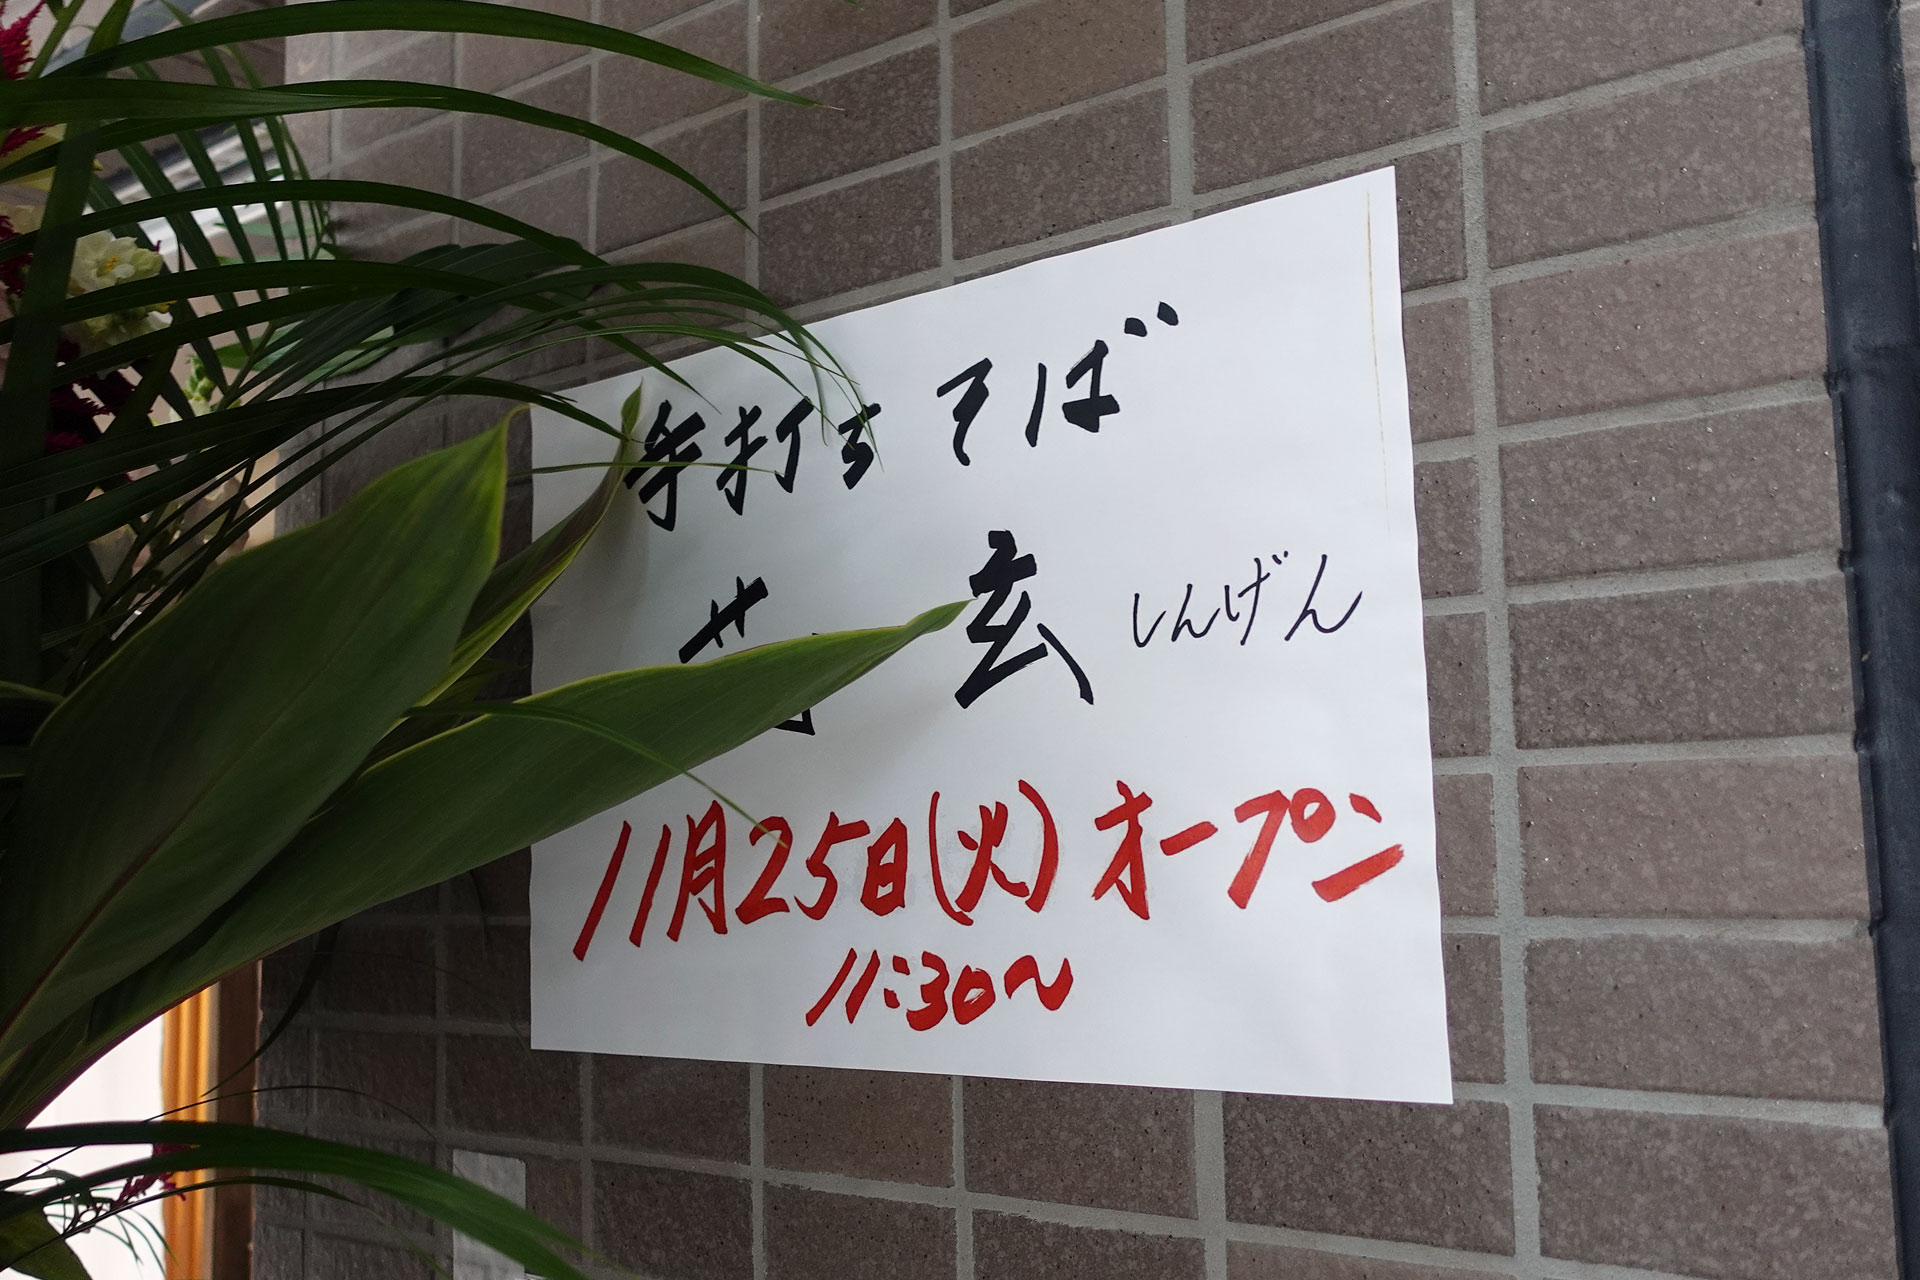 手打ちそば
玄 しんげん
11月25日(火)オープン
11:30～